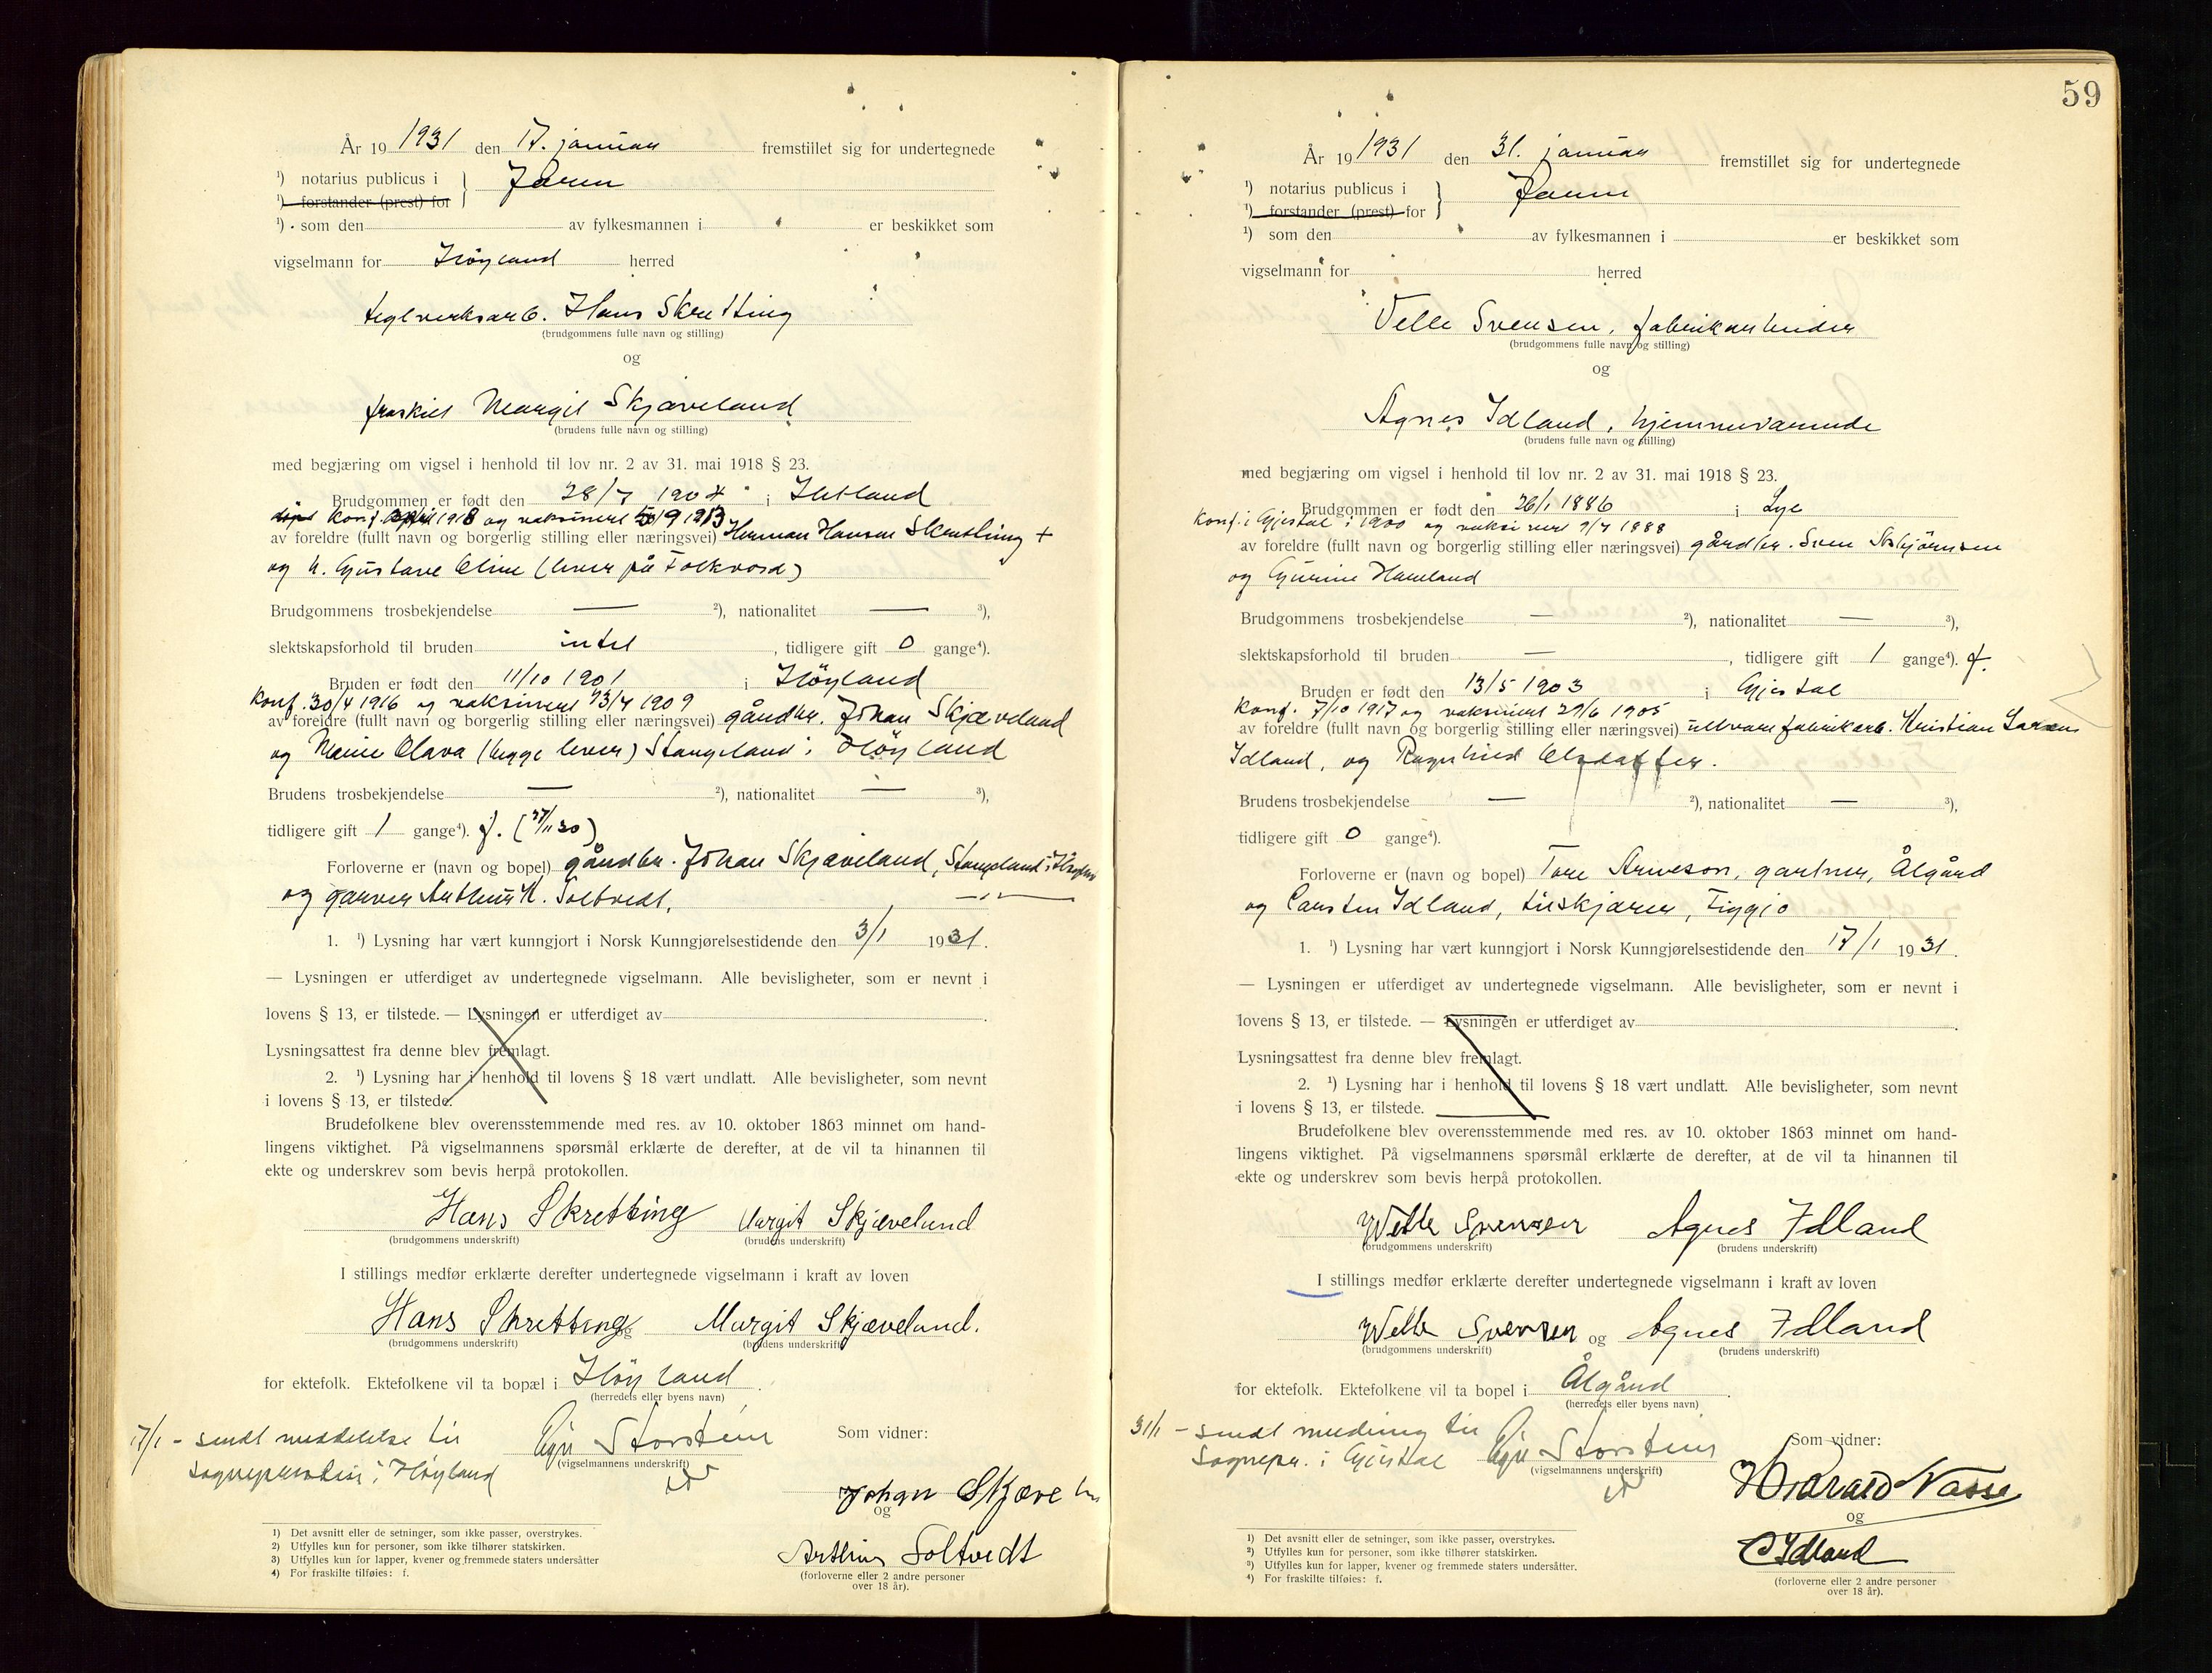 År 19 1931 den 17. januar fremstillet sig for undertegnede
¹) notarius publicus i } Jæren
¹) forstander (prest) for
¹) som den av fylkesmannen i er beskikket som
vigselmann for Höyland herred
teglverksarb. Hans Skretting
(brudgommens fulle navn og stilling)
og
fraskilt Margit Skjæveland
(brudens fulle navn og stilling)
med begjæring om vigsel i henhold til lov nr. 2 av 31. mai 1918 § 23.
Brudgommen er født den 28/7 1904 i Hetland
døpt konf. april 1918 og vaksinert 19 1913
av foreldre (fullt navn og borgerlig stilling eller næringsvei) Herman Hansen Skretting +
og h. Gustave Oline (lever på Folkvord)
Brudgommens trosbekjendelse — ²), nationalitet — ³),
slektskapsforhold til bruden intet, tidligere gift 0 gange⁴).
Bruden er født den 11/10 1901 i Höyland
konf. 30/4 1916 og vaksinert 13/7 1909
av foreldre (fullt navn og borgerlig stilling eller næringsvei) gårdbr. Johan Skjæveland
og Olava (begge lever) Stangeland i Höyland
Brudens trosbekjendelse — ²), nationalitet — ³),
tidligere gift 1 gange⁴). f. (27/11 30)
Forloverne er (navn og bopel) gårdbr. Johan Skjæveland, Stangeland i Höyland
og garver Arthur K. Soltvedt, —"—
1. ¹) Lysning har vært kunngjort i Norsk Kunngjørelsestidende den 3/1 1931.
— Lysningen er utferdiget av undertegnede vigselmann. Alle bevisligheter, som er nevnt i
lovens § 13, er tilstede. — Lysningen er utferdiget av
Lysningsattest fra denne blev fremlagt.
2. ¹) Lysning har i henhold til lovens § 18 vært undlatt. Alle bevisligheter, som nevnt
i lovens § 13, er tilstede.
Brudefolkene blev overensstemmende med res. av 10. oktober 1863 minnet om hand-
lingens viktighet. På vigselmannens spørsmål erklærte de derefter, at de vil ta hinannen til
ekte og underskrev som bevis herpå protokollen.
Hans Skretting Margit Skjæveland
(brudgommens underskrift) (brudens underskrift)
I stillings medfør erklærte derefter undertegnede vigselmann i kraft av loven
Hans Skretting og Margit Skjæveland.
(brudgommens underskrift) (brudens underskrift)
for ektefolk. Ektefolkene vil ta bopæl i Höyland.
(herredets eller byens navn)
17/1 – sendt meddelelse til
sognepresten i Höyland
Storstein
(vigselmannens underskrift)
Som vidner:
Johan Skjæve
og
Arthur Soltvedt
(forloverne eller 2 andre personer
over 18 år).
1) Det avsnitt eller de setninger, som ikke passer, overstrykes.
2) Utfylles kun for personer, som ikke tilhører statskirken.
3) Utfylles kun for lapper, kvener og fremmede staters undersåtter
4) For fraskilte tilføies: f.
59
År 19 1931 den 31. januar fremstillet sig for undertegnede
¹) notarius publicus i } Jæren
¹) forstander (prest) for
¹) som den av fylkesmannen i er beskikket som
vigselmann for herred
Velle Svensen, fabrikarbeider
(brudgommens fulle navn og stilling)
og
Agnes Idland, hjemmeværende
(brudens fulle navn og stilling)
med begjæring om vigsel i henhold til lov nr. 2 av 31. mai 1918 § 23.
Brudgommen er født den 26/1 1886 i Lye
konf. i Gjestal i 1900 og vaksinert 9/7 1888
av foreldre (fullt navn og borgerlig stilling eller næringsvei) gårdbr. Sven Asbjörnsen
og Gurine Haveland
Brudgommens trosbekjendelse — ²), nationalitet — ³),
slektskapsforhold til bruden —, tidligere gift 1 gange⁴). f.
Bruden er født den 13/5 1903 i Gjestal
konf. 7/10 1917 og vaksinert 29/6 1905
av foreldre (fullt navn og borgerlig stilling eller næringsvei) ullvarefabrikarb. Kristian Larsen
Idland, og Ragnhild Olsdatter.
Brudens trosbekjendelse — ²), nationalitet — ³),
tidligere gift 0 gange⁴).
Forloverne er (navn og bopel) Tore Arneson, gartner, Ålgård
og Carsten Idland, tilskjærer, Figgjo
1. ¹) Lysning har vært kunngjort i Norsk Kunngjørelsestidende den 17/1 1931.
— Lysningen er utferdiget av undertegnede vigselmann. Alle bevisligheter, som er nevnt i
lovens § 13, er tilstede. — Lysningen er utferdiget av
Lysningsattest fra denne blev fremlagt.
2. ¹) Lysning har i henhold til lovens § 18 vært undlatt. Alle bevisligheter, som nevnt
i lovens § 13, er tilstede.
Brudefolkene blev overensstemmende med res. av 10. oktober 1863 minnet om hand-
lingens viktighet. På vigselmannens spørsmål erklærte de derefter, at de vil ta hinannen til
ekte og underskrev som bevis herpå protokollen.
Velle Svensen Agnes Idland
(brudgommens underskrift) (brudens underskrift)
I stillings medfør erklærte derefter undertegnede vigselmann i kraft av loven
Velle Svensen og Agnes Idland
(brudgommens underskrift) (brudens underskrift)
for ektefolk. Ektefolkene vil ta bopel i Ålgård.
(herredets eller byens navn)
31/1 – sendt melding til
sognepr. i Gjestal
Storstein
(vigselmannens underskrift)
Som vidner:
Harald Vasse
og
C Idland
(forloverne eller 2 andre personer
over 18 år).
¹) Det avsnitt eller de setninger, som ikke passer, overstrykes.
²) Utfylles kun for personer, som ikke tilhører statskirken.
³) Utfylles kun for lapper, kvener og fremmede staters undersåtter.
⁴) For fraskilte tilføies: f.